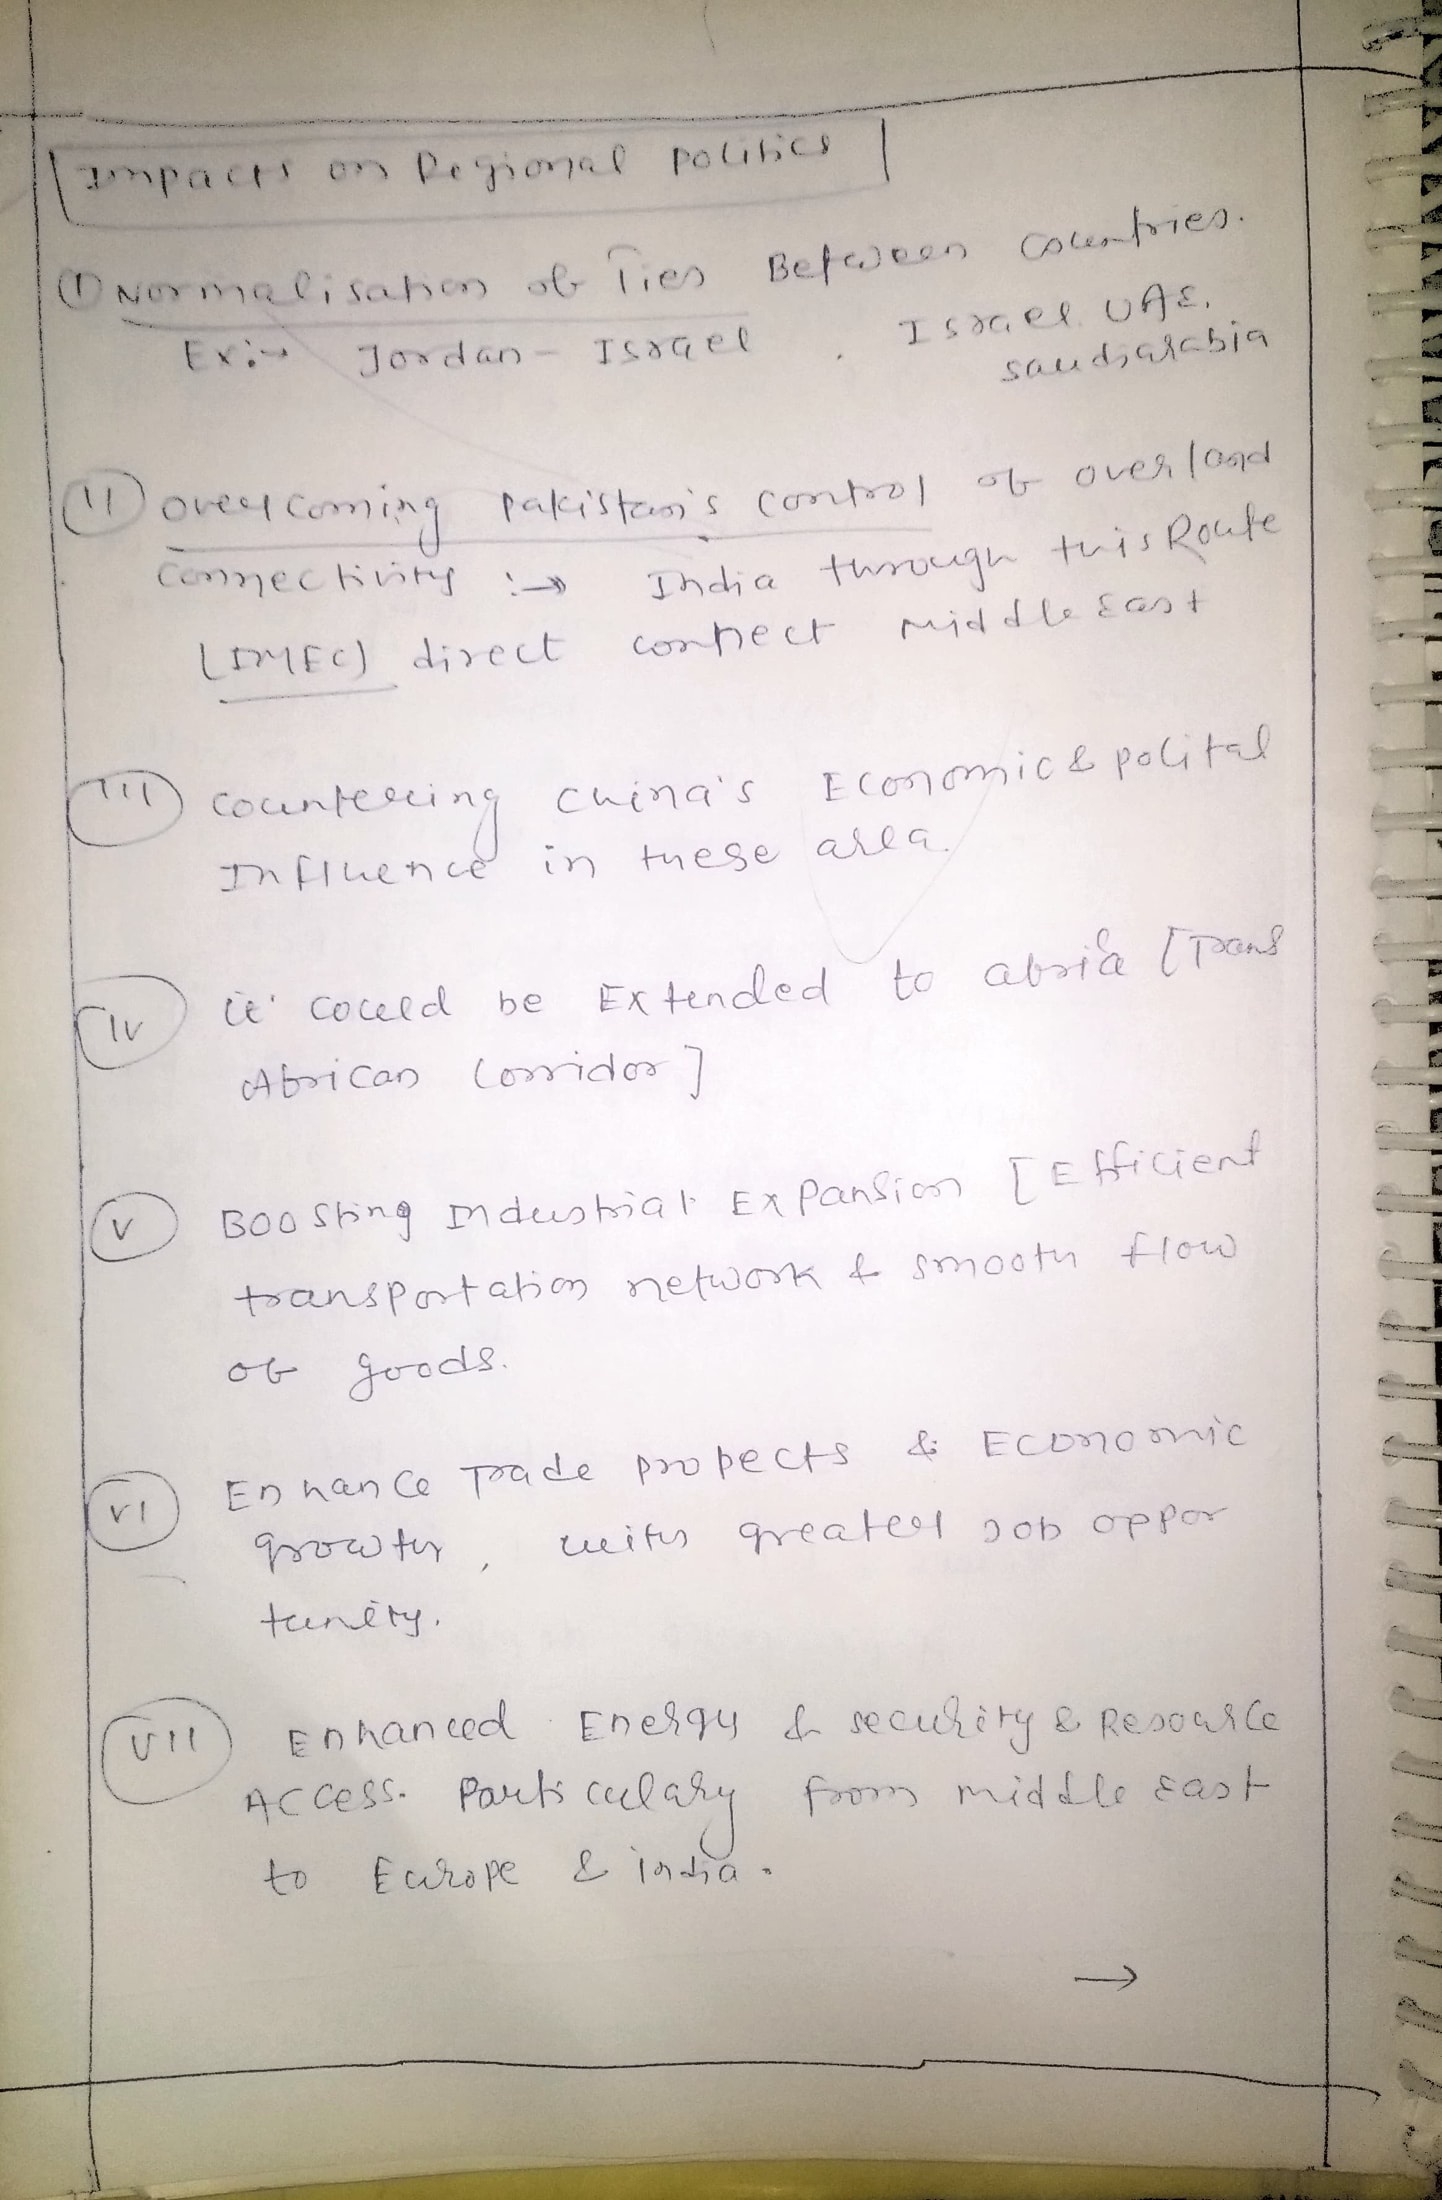 Impacts on Regional Politics
(I) Normalisation of Ties Between Countries.
Ex:→ Jordan - Israel, Israel UAE,
saudiarabia
(II) overcoming Pakistan's control of overland
connectivity :→ India through this Route
(IMEC) direct connect Middle East
(III) countering China's Economic & polital
Influence in these area.
(IV) it could be Extended to africa [Trans
African Corridor]
(V) Boosting Industrial Expansion [Efficient
transportation network & smooth flow
of goods.
(VI) Enhance Trade propects & Economic
growth, with greater Job oppor
tunity.
(VII) Enhanced Energy & security & Resource
Access. Particulary from middle East
to Europe & india.
→